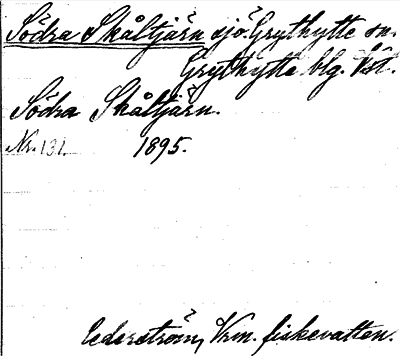 Södra Skåltjärn sjö. Grythytte sn.
Grythytte blg. Vstl.
Södra Skåltjärn.
Nr. 131. 1895.
Cederström, Vrm. fiskevatten.